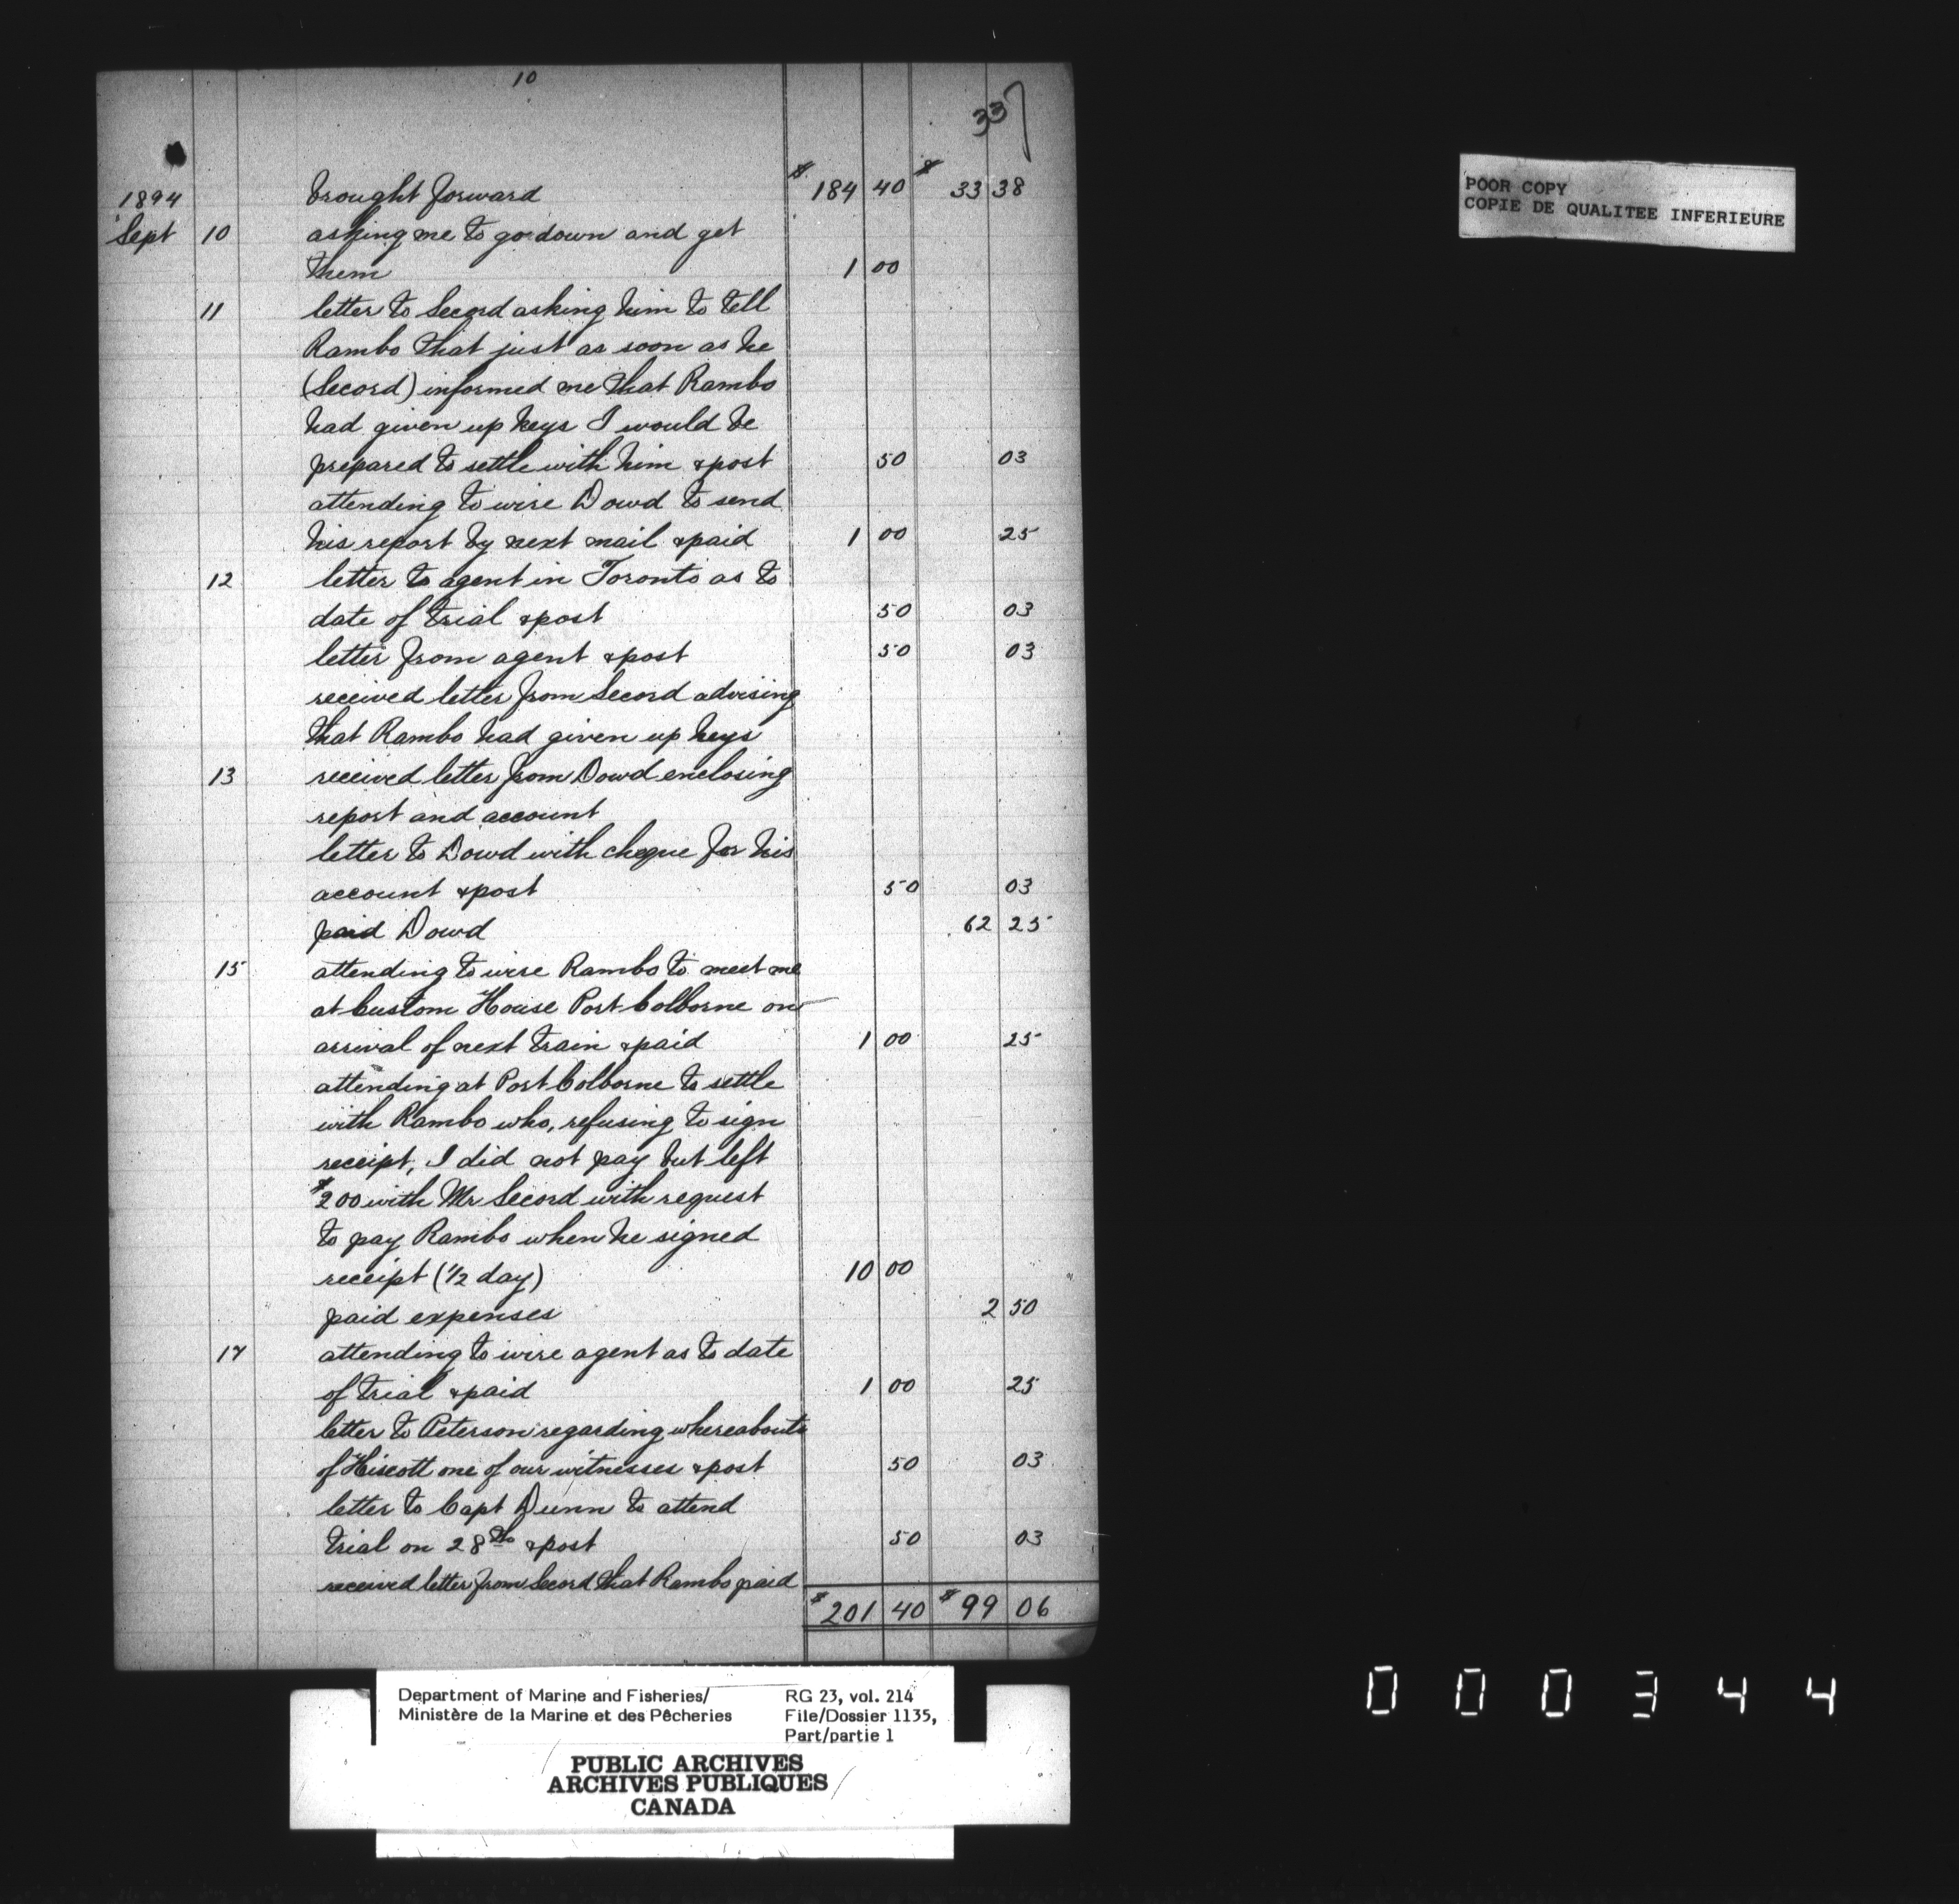 10
337
1894 brought forward $184 40 $33 38
Sept 10 asking me to go down and get
them 1 00
11 letter to Secord asking him to tell
Rambo that just as soon as he
(Secord) informed me that Rambo
had given up keys I would be
prepared to settle with him & post 50 03
attending to wire Dowd to send
his report by next mail & paid 1 00 25
12 letter to agent in Toronto as to
date of trial & post 50 03
letter from agent & post 50 03
received letter from Secord advising
that Rambo had given up keys
13 received letter from Dowd enclosing
report and account
letter to Dowd with cheque for his
account & post 50 03
paid Dowd 62 25
15 attending to wire Rambo to meet me
at Custom House Port Colborne on
arrival of next train & paid 1 00 25
attending at Port Colborne to settle
with Rambo who, refusing to sign
receipt, I did not pay but left
$200 with Mr Secord with request
to pay Rambo when he signed
receipt (1/2 day) 10 00
paid expenses 2 50
17 attending to wire agent as to date
of trial & paid 1 00 25
letter to Peterson regarding whereabouts
of Hiscott one of our witnesses & post 50 03
letter to Capt Dunn to attend
trial on 28th & post 50 03
received letter from Secord that Rambo paid
$201 40 $99 06
POOR COPY
COPIE DE QUALITEE INFERIEURE
Department of Marine and Fisheries/
Ministère de la Marine et des Pêcheries
RG 23, vol. 214
File/Dossier 1135,
Part/partie 1
PUBLIC ARCHIVES
ARCHIVES PUBLIQUES
CANADA
000344